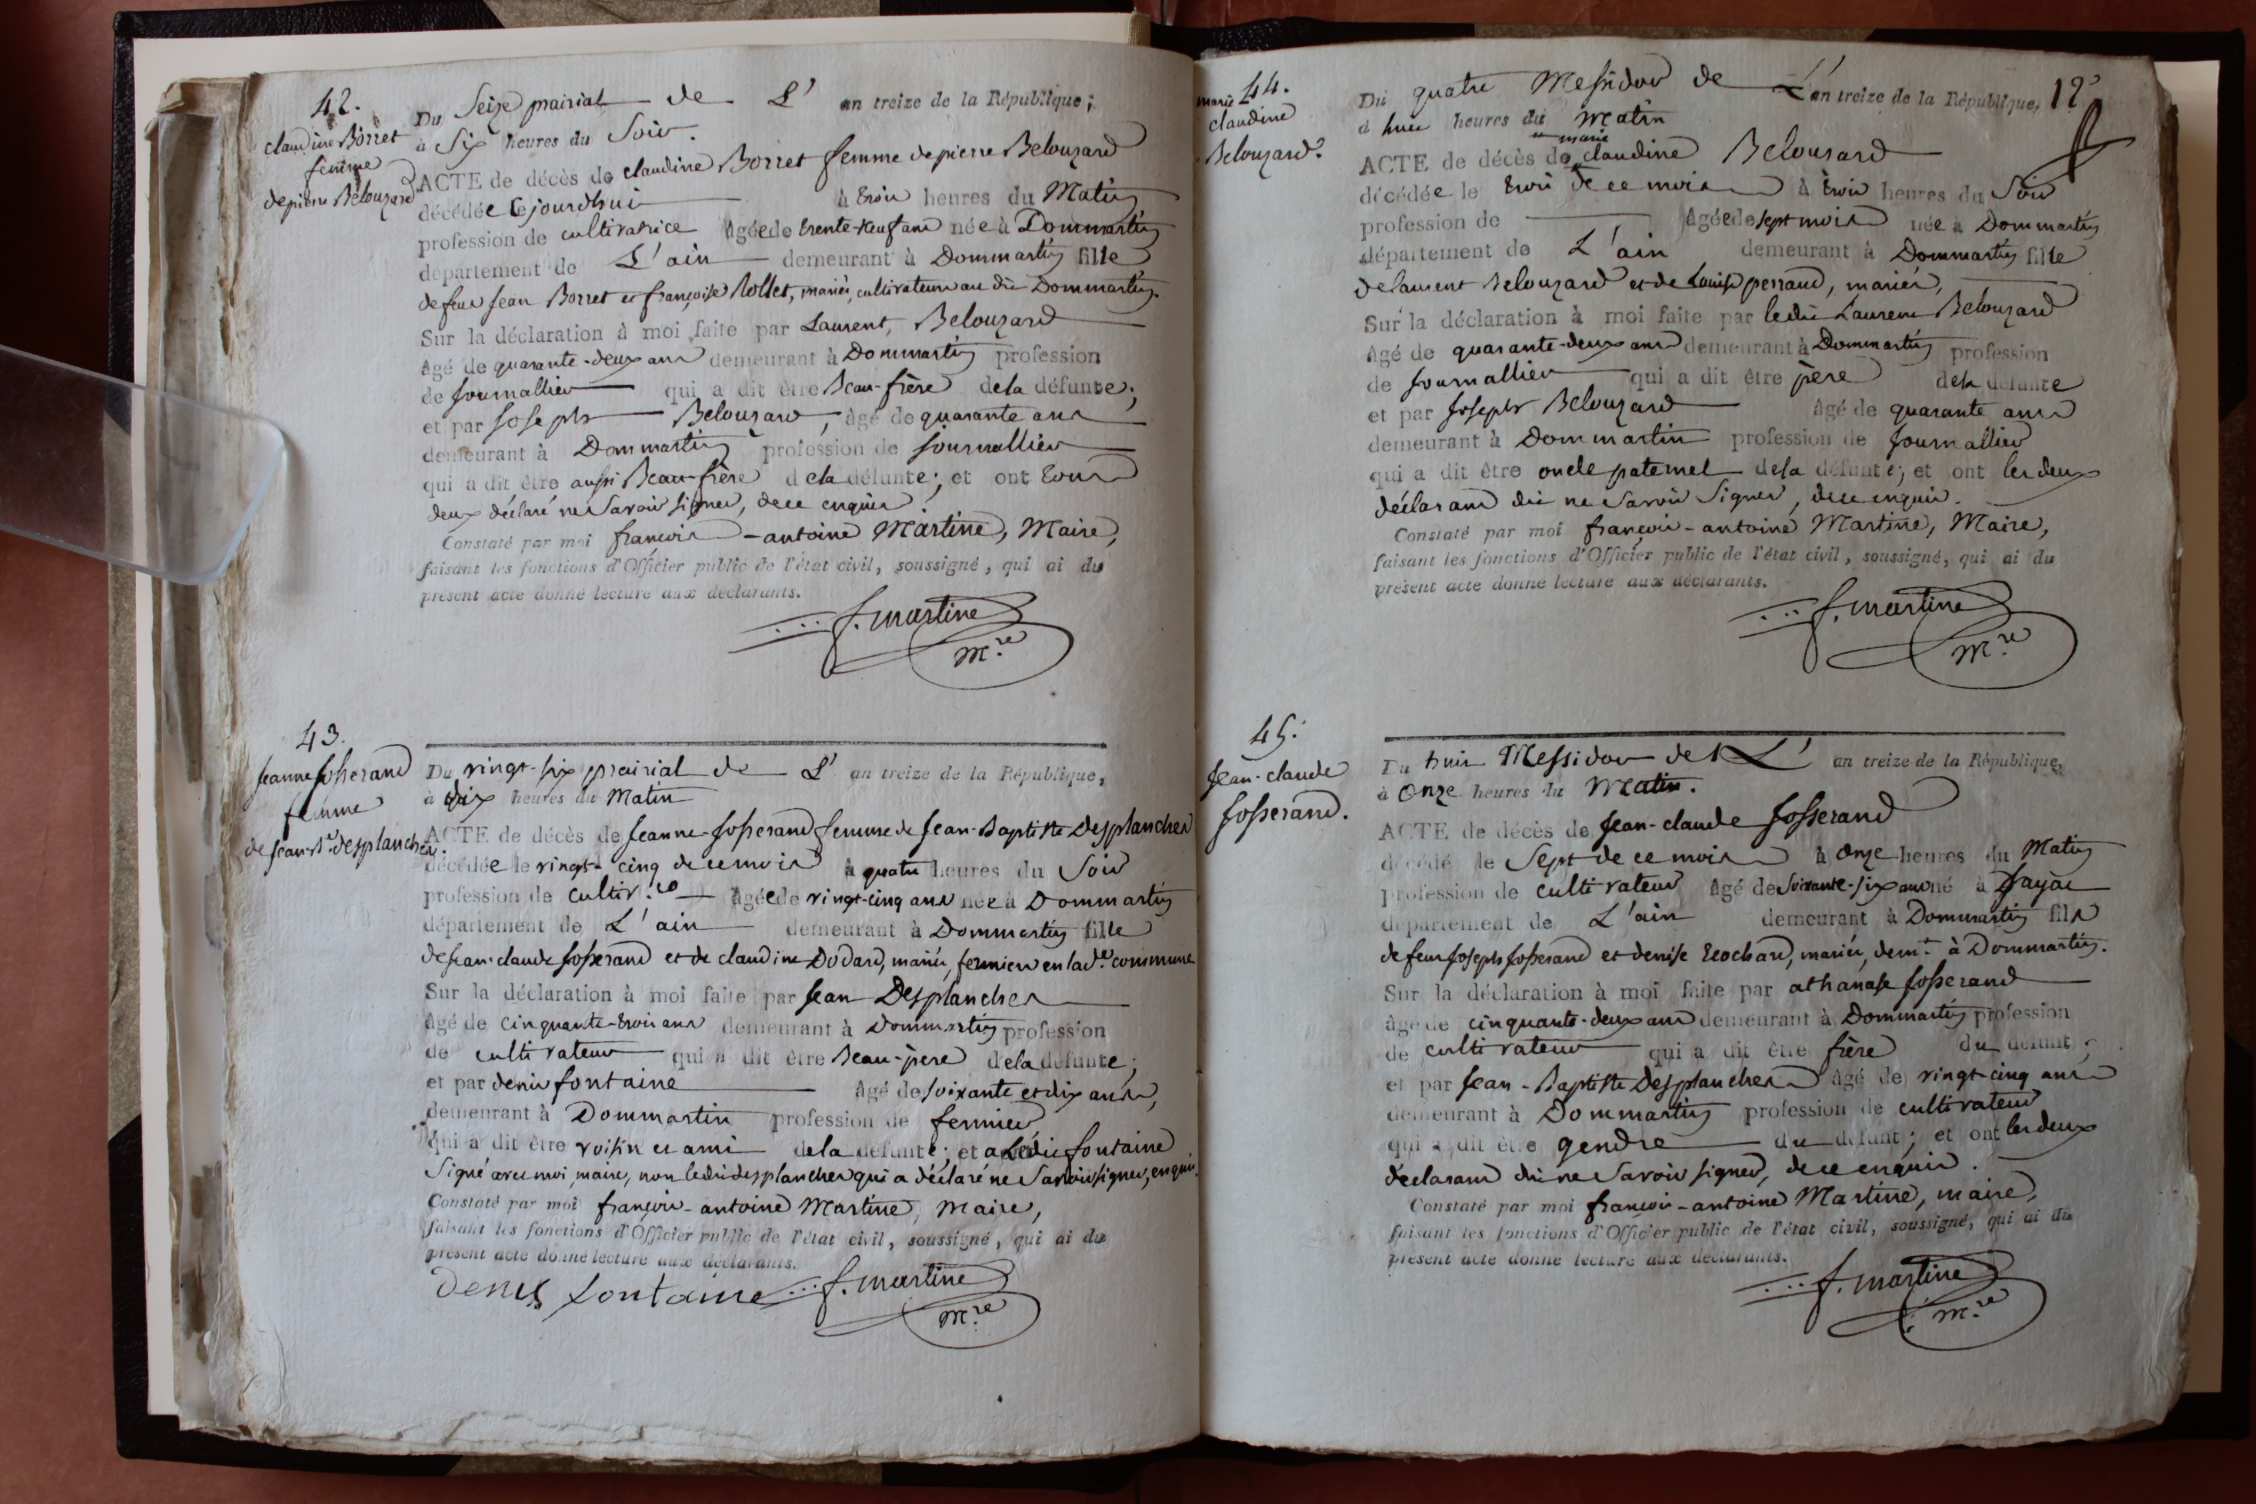 42.
claudine Borret
femme
de pierre Belouzard
Du Seize prairial de L' an treize de la République ;
à Six heures du Soir.
ACTE de décès de claudine Borret femme de pierre Belouzard
décédée cejourdhui à trois heures du Matin
profession de cultivatrice âgée de trente-neuf ans née à Dommartin
département de L'ain demeurant à Dommartin fille
de feu Jean Borret et françoise Rollet, mariés, cultivateurs au dit Dommartin.
Sur la déclaration à moi faite par Laurent, Belouzard
âgé de quarante-deux ans demeurant à Dommartin profession
de Journallier qui a dit être Beau-frère de la défunte ;
et par Joseph Belouzard, âgé de quarante ans
demeurant à Dommartin profession de journallier
qui a dit être aussi Beau-frère de la défunte ; et ont tous
deux déclaré ne Savoir signer, de ce enquis.
Constaté par moi françois-antoine Martine, Maire,
faisant les fonctions d'Officier public de l'état civil, soussigné, qui ai du
présent acte donné lecture aux déclarants.
f. martine
M.re
43.
Jeanne Josserand
femme
de Jean-Bte desplanches.
Du vingt-six prairial de L' an treize de la République,
à dix heures du Matin
ACTE de décès de Jeanne-Josserand femme de Jean-Baptiste Desplanches
décédée le vingt-cinq de ce mois à quatre heures du Soir
profession de cultiv.ce âgée de vingt-cinq ans née à Dommartin
département de L'ain demeurant à Dommartin fille
de Jean-claude Josserand et de claudine Dodard, mariés, fermiers en lad.te commune
Sur la déclaration à moi faite par Jean Desplanches
âgé de cinquante-trois ans demeurant à Dommartin profession
de cultivateur qui a dit être Beau-père de la défunte ;
et par denis fontaine âgé de soixante et dix ans,
demeurant à Dommartin profession de fermier
qui a dit être voisin et ami de la défunte ; et a Ledit fontaine
Signé avec moi, maire, non ledit desplanches qui a déclaré ne Savoir signer, enquis.
Constaté par moi françois-antoine Martine, Maire,
faisant les fonctions d'Officier public de l'état civil, soussigné, qui ai du
présent acte donné lecture aux déclarants.
Denis fontaine f. martine
M.re
44.
marie
claudine
Belouzard.
12
Du quatre Messidor de L' an treize de la République,
à huit heures du Matin
marie
ACTE de décès de claudine Belouzard
décédée le trois de ce mois à trois heures du Soir
profession de âgée de sept mois née à Dommartin
département de L'ain demeurant à Dommartin fille
de laurent Belouzard et de Louise perraud, mariés,
Sur la déclaration à moi faite par ledit Laurent Belouzard
âgé de quarante-deux ans demeurant à Dommartin profession
de Journallier qui a dit être père de la défunte
et par Joseph Belouzard âgé de quarante ans
demeurant à Dommartin profession de Journallier
qui a dit être oncle paternel de la défunte ; et ont les deux
déclarans dit ne Savoir Signer, de ce enquis.
Constaté par moi françois-antoine Martine, Maire,
faisant les fonctions d'Officier public de l'état civil, soussigné, qui ai du
présent acte donné lecture aux déclarants.
f. martine
M.re
45.
Jean-claude
Josserand.
Du huit Messidor de L' an treize de la République,
à Onze heures du Matin.
ACTE de décès de Jean-claude Josserand
décédé le Sept de ce mois à Onze heures du Matin
profession de cultivateur âgé de Soixante-six ans né à
département de L'ain demeurant à Dommartin fils
de feu Joseph Josserand et denise mariés, dem.t à Dommartin.
Sur la déclaration à moi faite par athanase Josserand
âgé de cinquante-deux ans demeurant à Dommartin profession
de cultivateur qui a dit être frère du défunt ;
et par Jean-Baptiste Desplanches âgé de vingt-cinq ans
demeurant à Dommartin profession de cultivateur
qui a dit être gendre du défunt ; et ont les deux
déclarans dit ne Savoir signer, de ce enquis.
Constaté par moi françois-antoine Martine, maire,
faisant les fonctions d'Officier public de l'état civil, soussigné, qui ai du
présent acte donné lecture aux déclarants.
f. martine
M.re